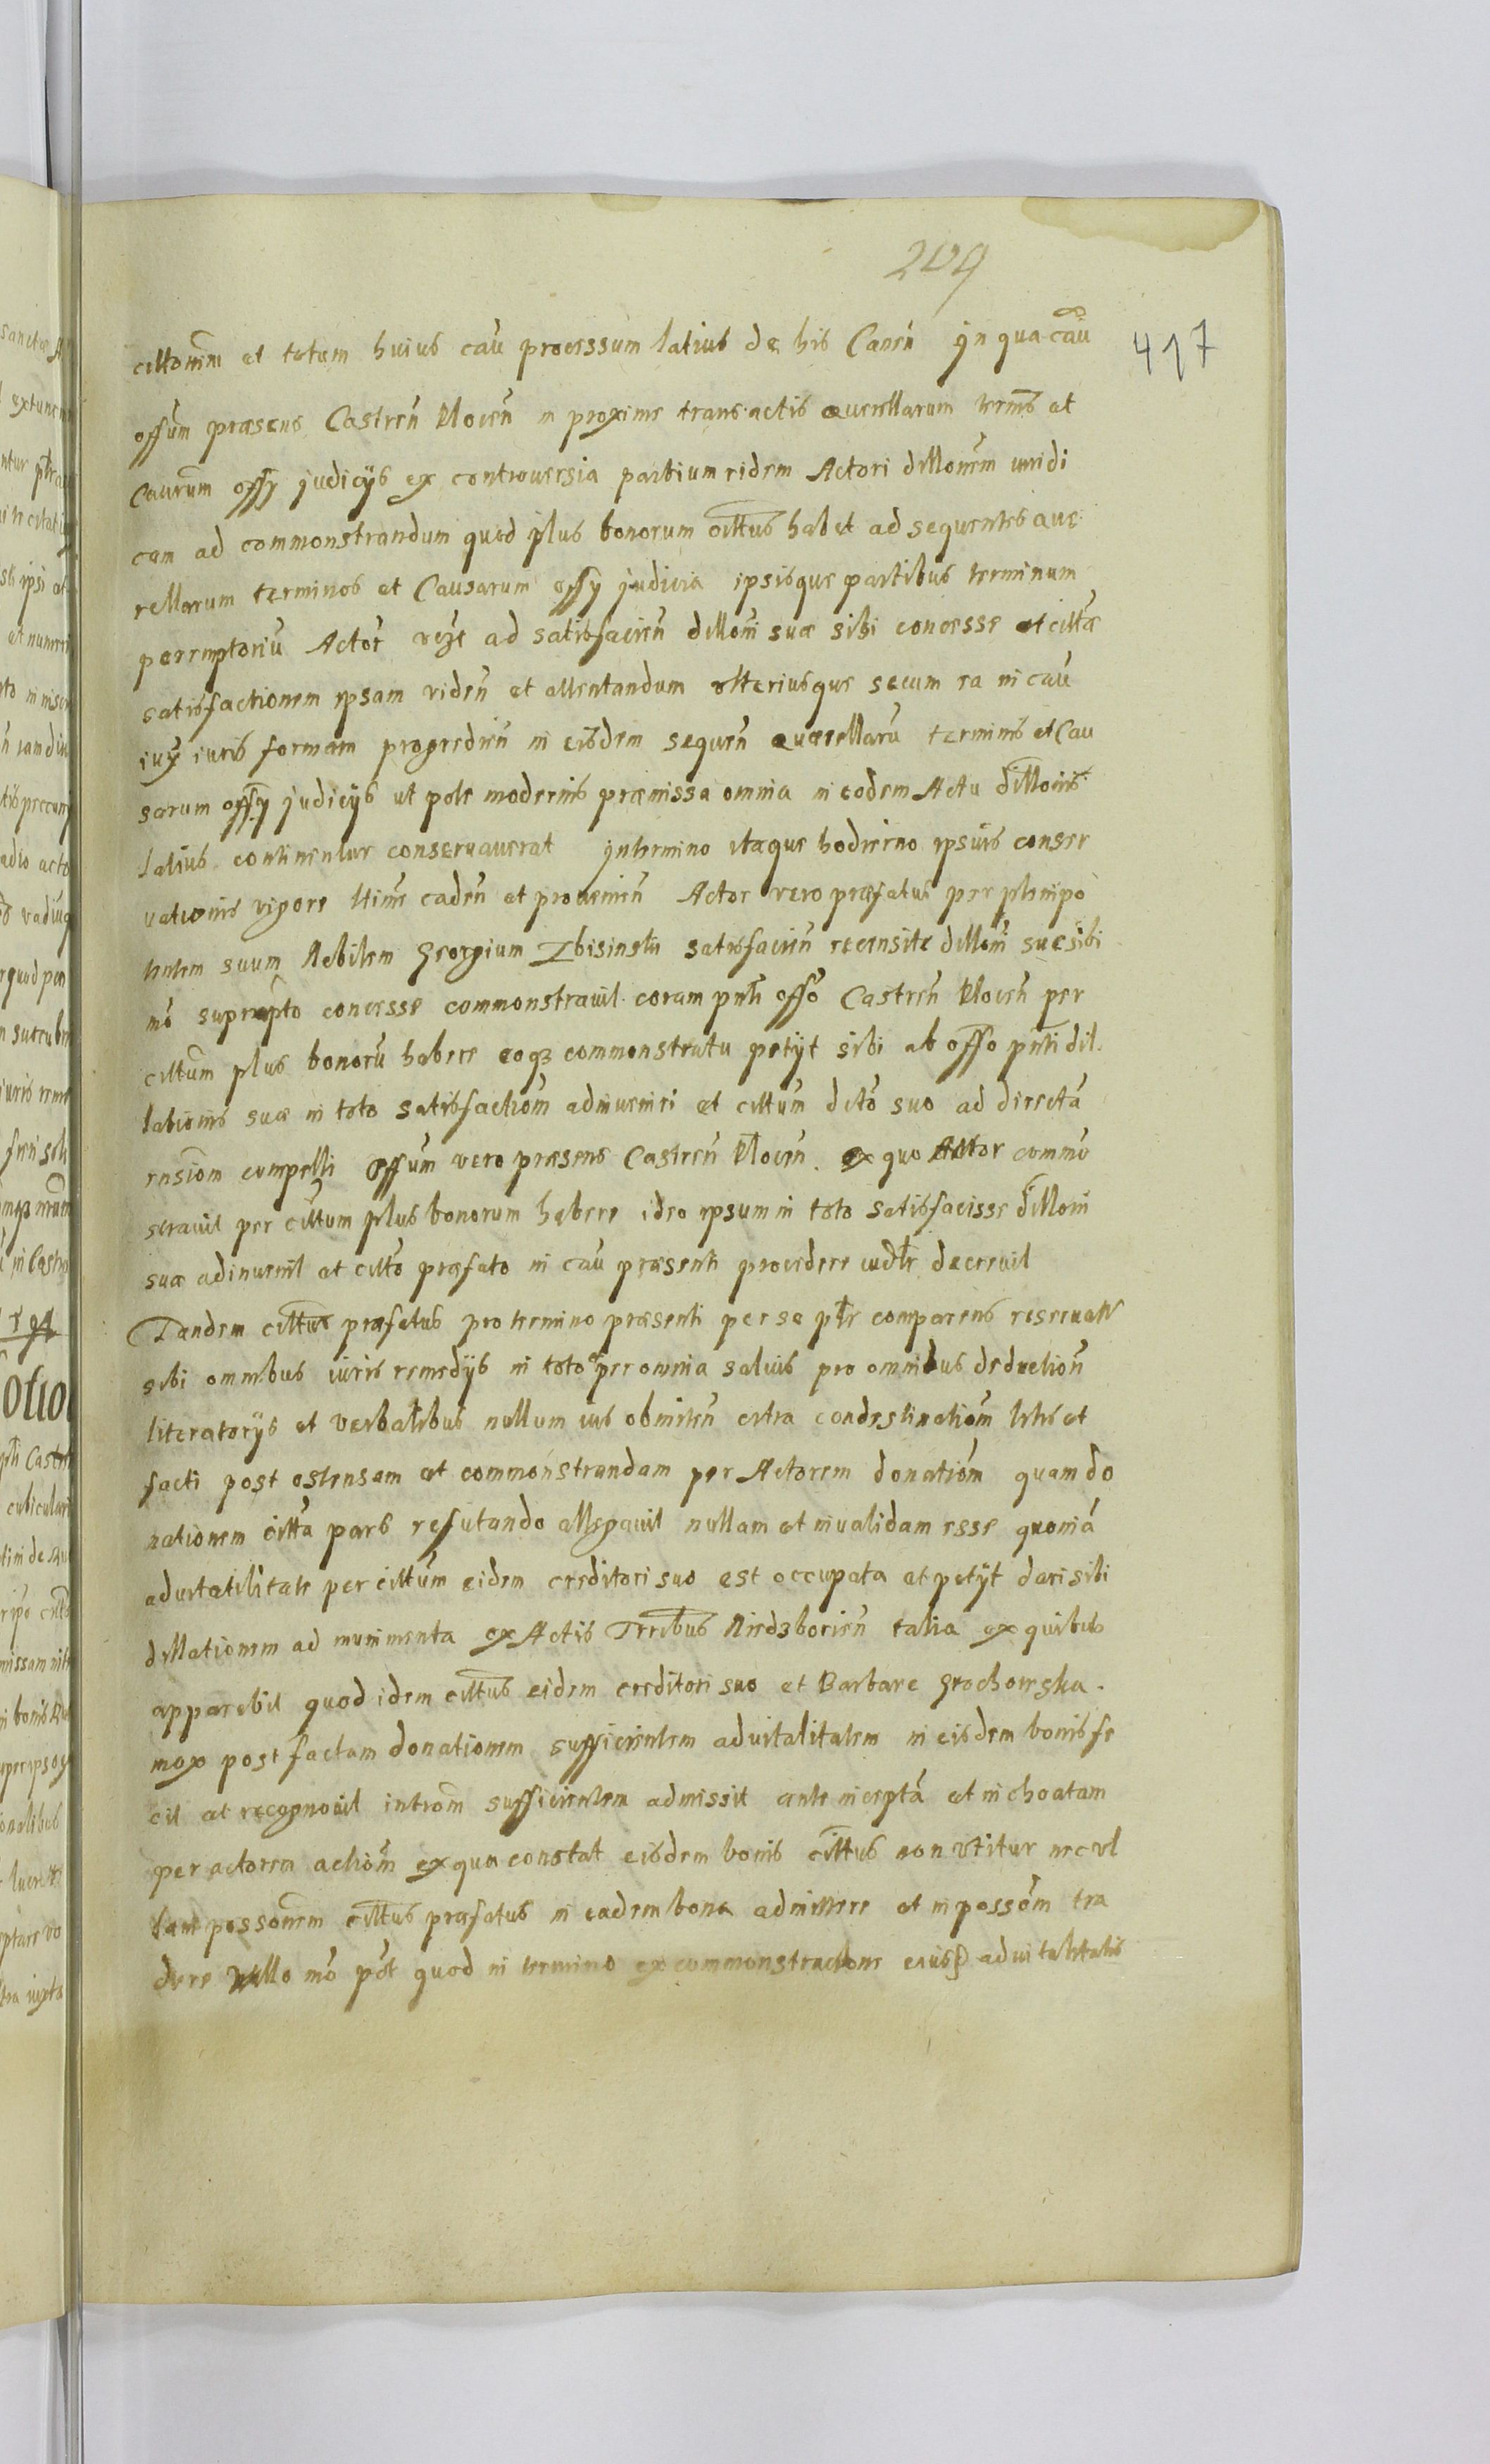 209
417
cittonem et totum huius cau processum latius de his Canen in qua cau
offum præsens Castren Plocen in proxime transactis querellarum termis et
Caurum offy judicijs ex controversia partium eidem Actori dillonem iuridi
cam ad commonstrandum quod plus bonorum cittus habet ad sequentes que
rellarum terminos et Causarum offy judicia ipsisque partibus terminum
peremptoriu Actor ad satisfacien dilloni suæ sibi concesse et cittæ
satisfactionem ipsam viden et attentandum ulteriusque secum ea in cau
iux iuris formam progredien in eisdem sequen querellaru terminis et Cau
sarum offy judicijs ut pote modernis præmissa omnia in eodem Actu dillonis
latius continentur conservaverat In termino itaque hodierno ipsius conser
vationis vigore ltime caden et provenien Actor vero præfatus per plenipo
tentem suum Nobilem Georgium satisfacien recensite dilloni suæ sibi
mo suprapto concesse commonstravit coram pnti offo Castren Plocen per
cittum plus bonoru habere eoq3 commonstratu petijt sibi ab offo pnti dil
lationis suæ in toto satisfactiom adinveniri et cittum dcto suo ad directa
rnsiom compelli Offum vero præsens Castren Plocen ex quo Actor commo
stravit per cittum plus bonorum habere ideo ipsum in toto satisfacisse dilloni
suæ adinvenit et citto præfato in cau præsenti procedere iudtr decrevit
Tandem cittus præfatus pro termino præsenti per se pltr comparens reservatis
sibi omnibus iuris remedijs in toto et per omnia salvis pro omnibus deduction
literatorijs et verbalibus nullum ius obmitten citra condestinatiom litis et
facti post ostensam et commonstrandam per Actorem donatiom quam do
nationem citta pars refutando allegavit nullam et invalidam esse quonia
advitalitate per cittum eidem creditori suo est occupata et petijt dari sibi
dillationem ad munimenta ex Actis Trribus Niedzborien talia ex quibus
apparebit quod idem cittus eidem creditori suo et Barbare Grochowska
mox post factam donationem sufficientem advitalitatem in eisdem bonis fe
cit et recognovit introm sufficientem admissit ante incepta et inchoatam
per actorem actiom ex quo constat eisdem bonis cittus non utitur nec ul
lam possonem cittus præfatus in eadem bona admittere et in possom tra
dere nullo mo pot quod in termino ex commonstratione eiusd advitalitatis